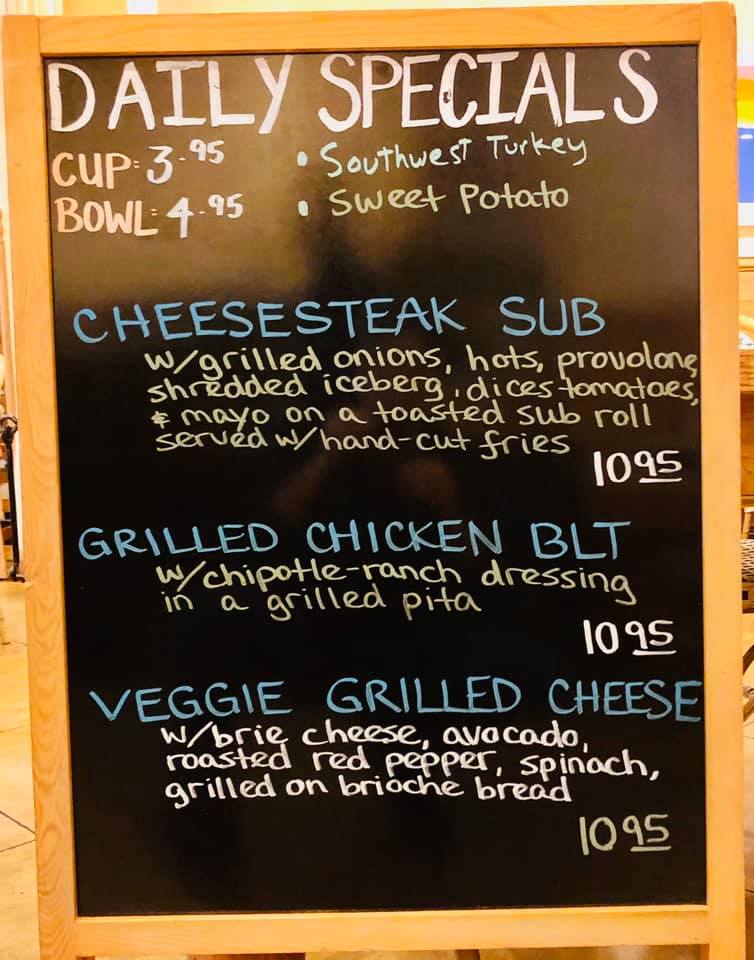 DAILY SPECIALS
CUP: 3.95 • Southwest Turkey
BOWL: 4.95 • Sweet Potato
CHEESESTEAK SUB
w/grilled onions, hots, provolone,
shredded iceberg, dices tomatoes,
& mayo on a toasted sub roll
served w/hand-cut fries
10 95
GRILLED CHICKEN BLT
w/chipotle-ranch dressing
in a grilled pita
10 95
VEGGIE GRILLED CHEESE
w/brie cheese, avocado,
roasted red pepper, spinach,
grilled on brioche bread
10 95